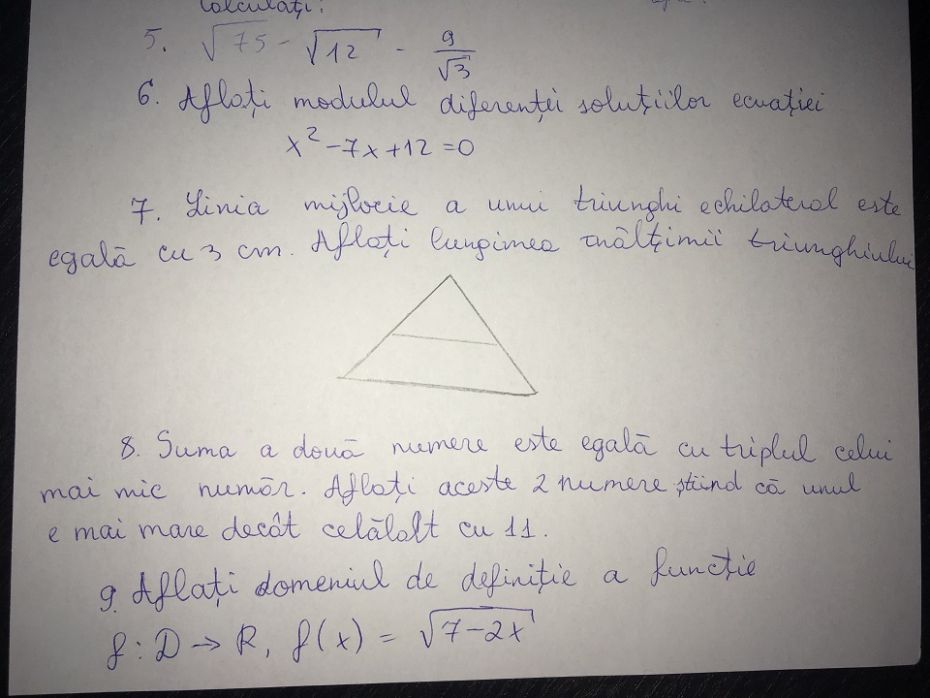 Calculați:
5. √75 - √12 - 9/√3
6. Aflați modulul diferenței soluțiilor ecuației
x² - 7x + 12 = 0
7. Linia mijlocie a unui triunghi echilateral este
egală cu 3 cm. Aflați lungimea înălțimii triunghiului
8. Suma a două numere este egală cu triplul celui
mai mic număr. Aflați aceste 2 numere știind că unul
e mai mare decât celălalt cu 11.
9. Aflați domeniul de definiție a funcție
f : D → R, f(x) = √7-2x